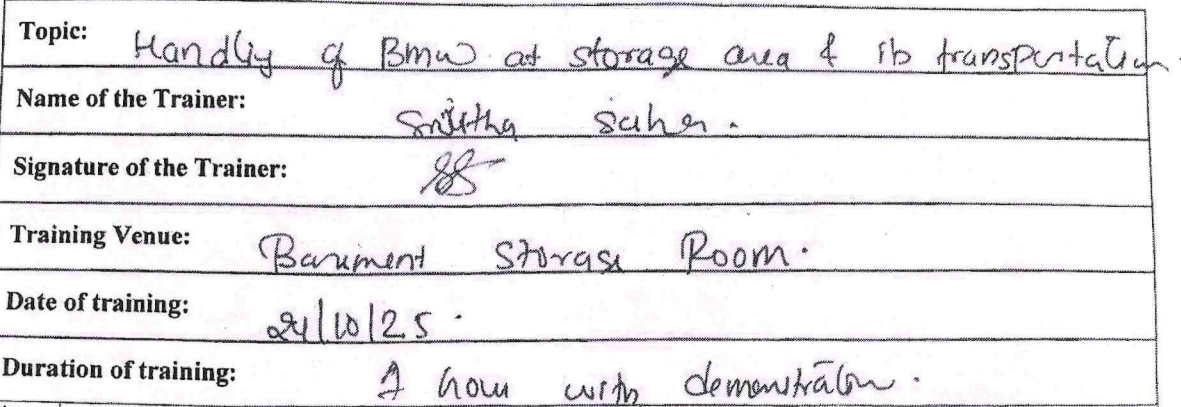 Topic: Handling of BMW at storage area & its transportation.
Name of the Trainer: Saher.
Signature of the Trainer:
Training Venue: Basement Storage Room.
Date of training: 24/10/25.
Duration of training: 1 hour with demonstration.